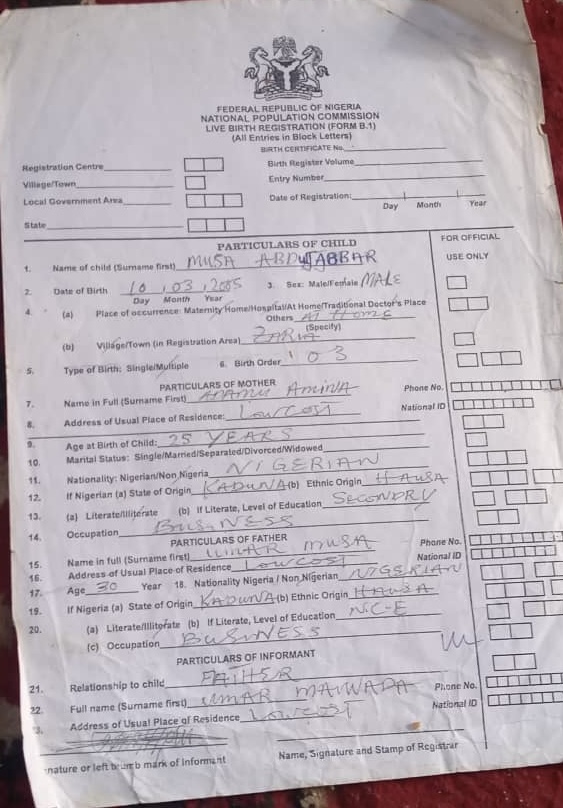 FEDERAL REPUBLIC OF NIGERIA
NATIONAL POPULATION COMMISSION
LIVE BIRTH REGISTRATION (FORM B.1)
(All Entries in Block Letters)
BIRTH CERTIFICATE No.
Registration Centre
Birth Register Volume
Village/Town
Entry Number
Local Government Area
Date of Registration:
Day Month Year
State
PARTICULARS OF CHILD
FOR OFFICIAL
USE ONLY
1. Name of child (Surname first) MUSA ABDULJABBAR
2. Date of Birth 10, 03, 2005 3. Sex: Male/Female MALE
Day Month Year
4. (a) Place of occurrence: Maternity Home/Hospital/At Home/Traditional Doctor's Place
Others At Home
(Specify)
(b) Village/Town (in Registration Area) ZARIA
5. Type of Birth: Single/Multiple 6. Birth Order 03
PARTICULARS OF MOTHER
7. Name in Full (Surname First) AMINA Phone No.
8. Address of Usual Place of Residence: Lowcost National ID
9. Age at Birth of Child: 25 YEARS
10. Marital Status: Single/Married/Separated/Divorced/Widowed
11. Nationality: Nigerian/Non Nigeria NIGERIAN
12. If Nigerian (a) State of Origin KADUNA (b) Ethnic Origin HAUSA
13. (a) Literate/Illiterate (b) If Literate, Level of Education SECONDRY
14. Occupation BUSINESS
PARTICULARS OF FATHER
15. Name in full (Surname first) UMAR MUSA Phone No.
16. Address of Usual Place of Residence Lowcost National ID
17. Age 30 Year 18. Nationality Nigeria / Non Nigerian NIGERIAN
19. If Nigeria (a) State of Origin KADUNA (b) Ethnic Origin HAUSA
20. (a) Literate/Illitorate (b) If Literate, Level of Education N.C.E
(c) Occupation BUSINESS
PARTICULARS OF INFORMANT
21. Relationship to child FATHER
22. Full name (Surname first) UMAR MAIWADA Phone No.
3. Address of Usual Place of Residence Lowcost National ID
nature or left thumb mark of Informant Name, Signature and Stamp of Registrar